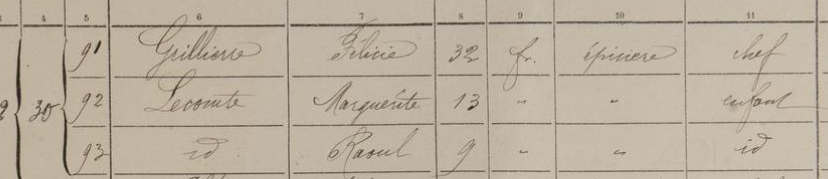 4 5 6 7 8 9 10 11
91 Grillierre Félicie 32 fr. épiciere chef
30 92 Lecomte Marguerite 13 " " enfant
93 id Raoul 9 " " id